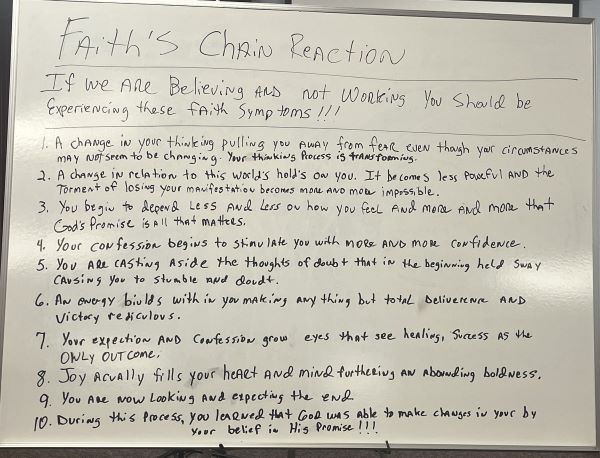 Faith's Chain Reaction
If we are Believing and not Working You Should be
Experiencing these faith Symptoms !!!
1. A change in your thinking pulling you away from fear even though your circumstances
may not seem to be changing. Your thinking Process is transforming.
2. A change in relation to this world's hold's on you. It becomes less powerful and the
Torment of losing your manifestation becomes more and more impossible.
3. You begin to depend less and less on how you feel and more and more that
God's Promise is all that matters.
4. Your confession begins to stimulate you with more and more confidence.
5. You are casting aside the thoughts of doubt that in the beginning held sway
causing you to stumble and doubt.
6. An energy biulds with in you making any thing but total Deliverence and
Victory rediculous.
7. Your expection and confession grow eyes that see healing, Success as the
ONLY OUTCOME.
8. Joy acually fills your heart and mind furthering an abounding boldness.
9. You are now Looking and expecting the end
10. During this process, you learned that God was able to make changes in your by
Your belief in His Promise !!!